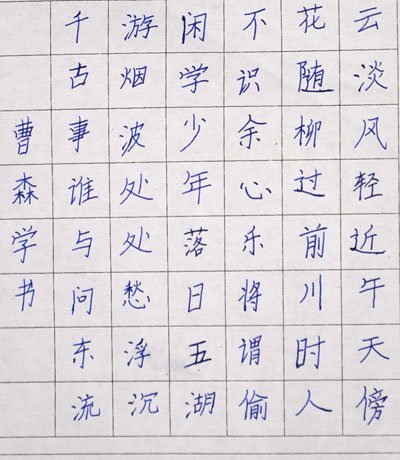 云淡风轻近午天傍
花随柳过前川时人
不识余心乐将谓偷
闲学少年落日五湖
游烟波处处愁浮沉
千古事谁与问东流
曹森学书